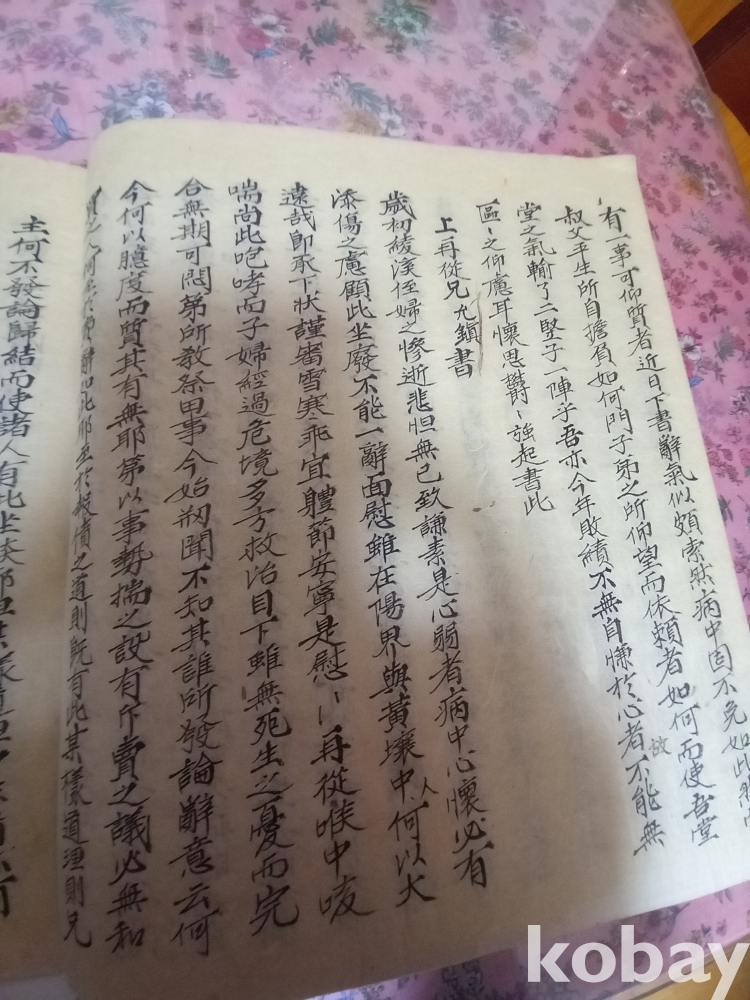 有一事可仰質者近日下書辭氣似頗索然病中固不免如此
叔父平生所自擔負如何門子弟之所仰望而依賴者如何而使吾堂
堂之氣輸了二竪子一陣乎吾亦今年敗績不無自慊於心者不能無
故
區〻之仰慮耳懷思欝〻強起書此
上再從兄九鎮書
歲初綾溪侄婦之慘逝悲怛無已致謙素是心弱者病中心懷必有
添傷之慮顧此坐廢不能一辭面慰雖在陽界與黃壤中人何以大
遠哉卽承下狀謹審雪寒乖宜體節安寧是慰〻再從喉中咳
喘尚此咆哮而子婦經過危境多方救治目下雖無死生之憂而完
合無期可悶第所教祭田事今始刱聞不知其誰所發論辭意云何
今何以臆度而質其有無耶第以事勢揣之設有斥賣之議必無和
賣之人何至於費辭如此耶至於報債之道則旣有此某樣道理則兄
主何不發論歸結而使諸人有此
kobay